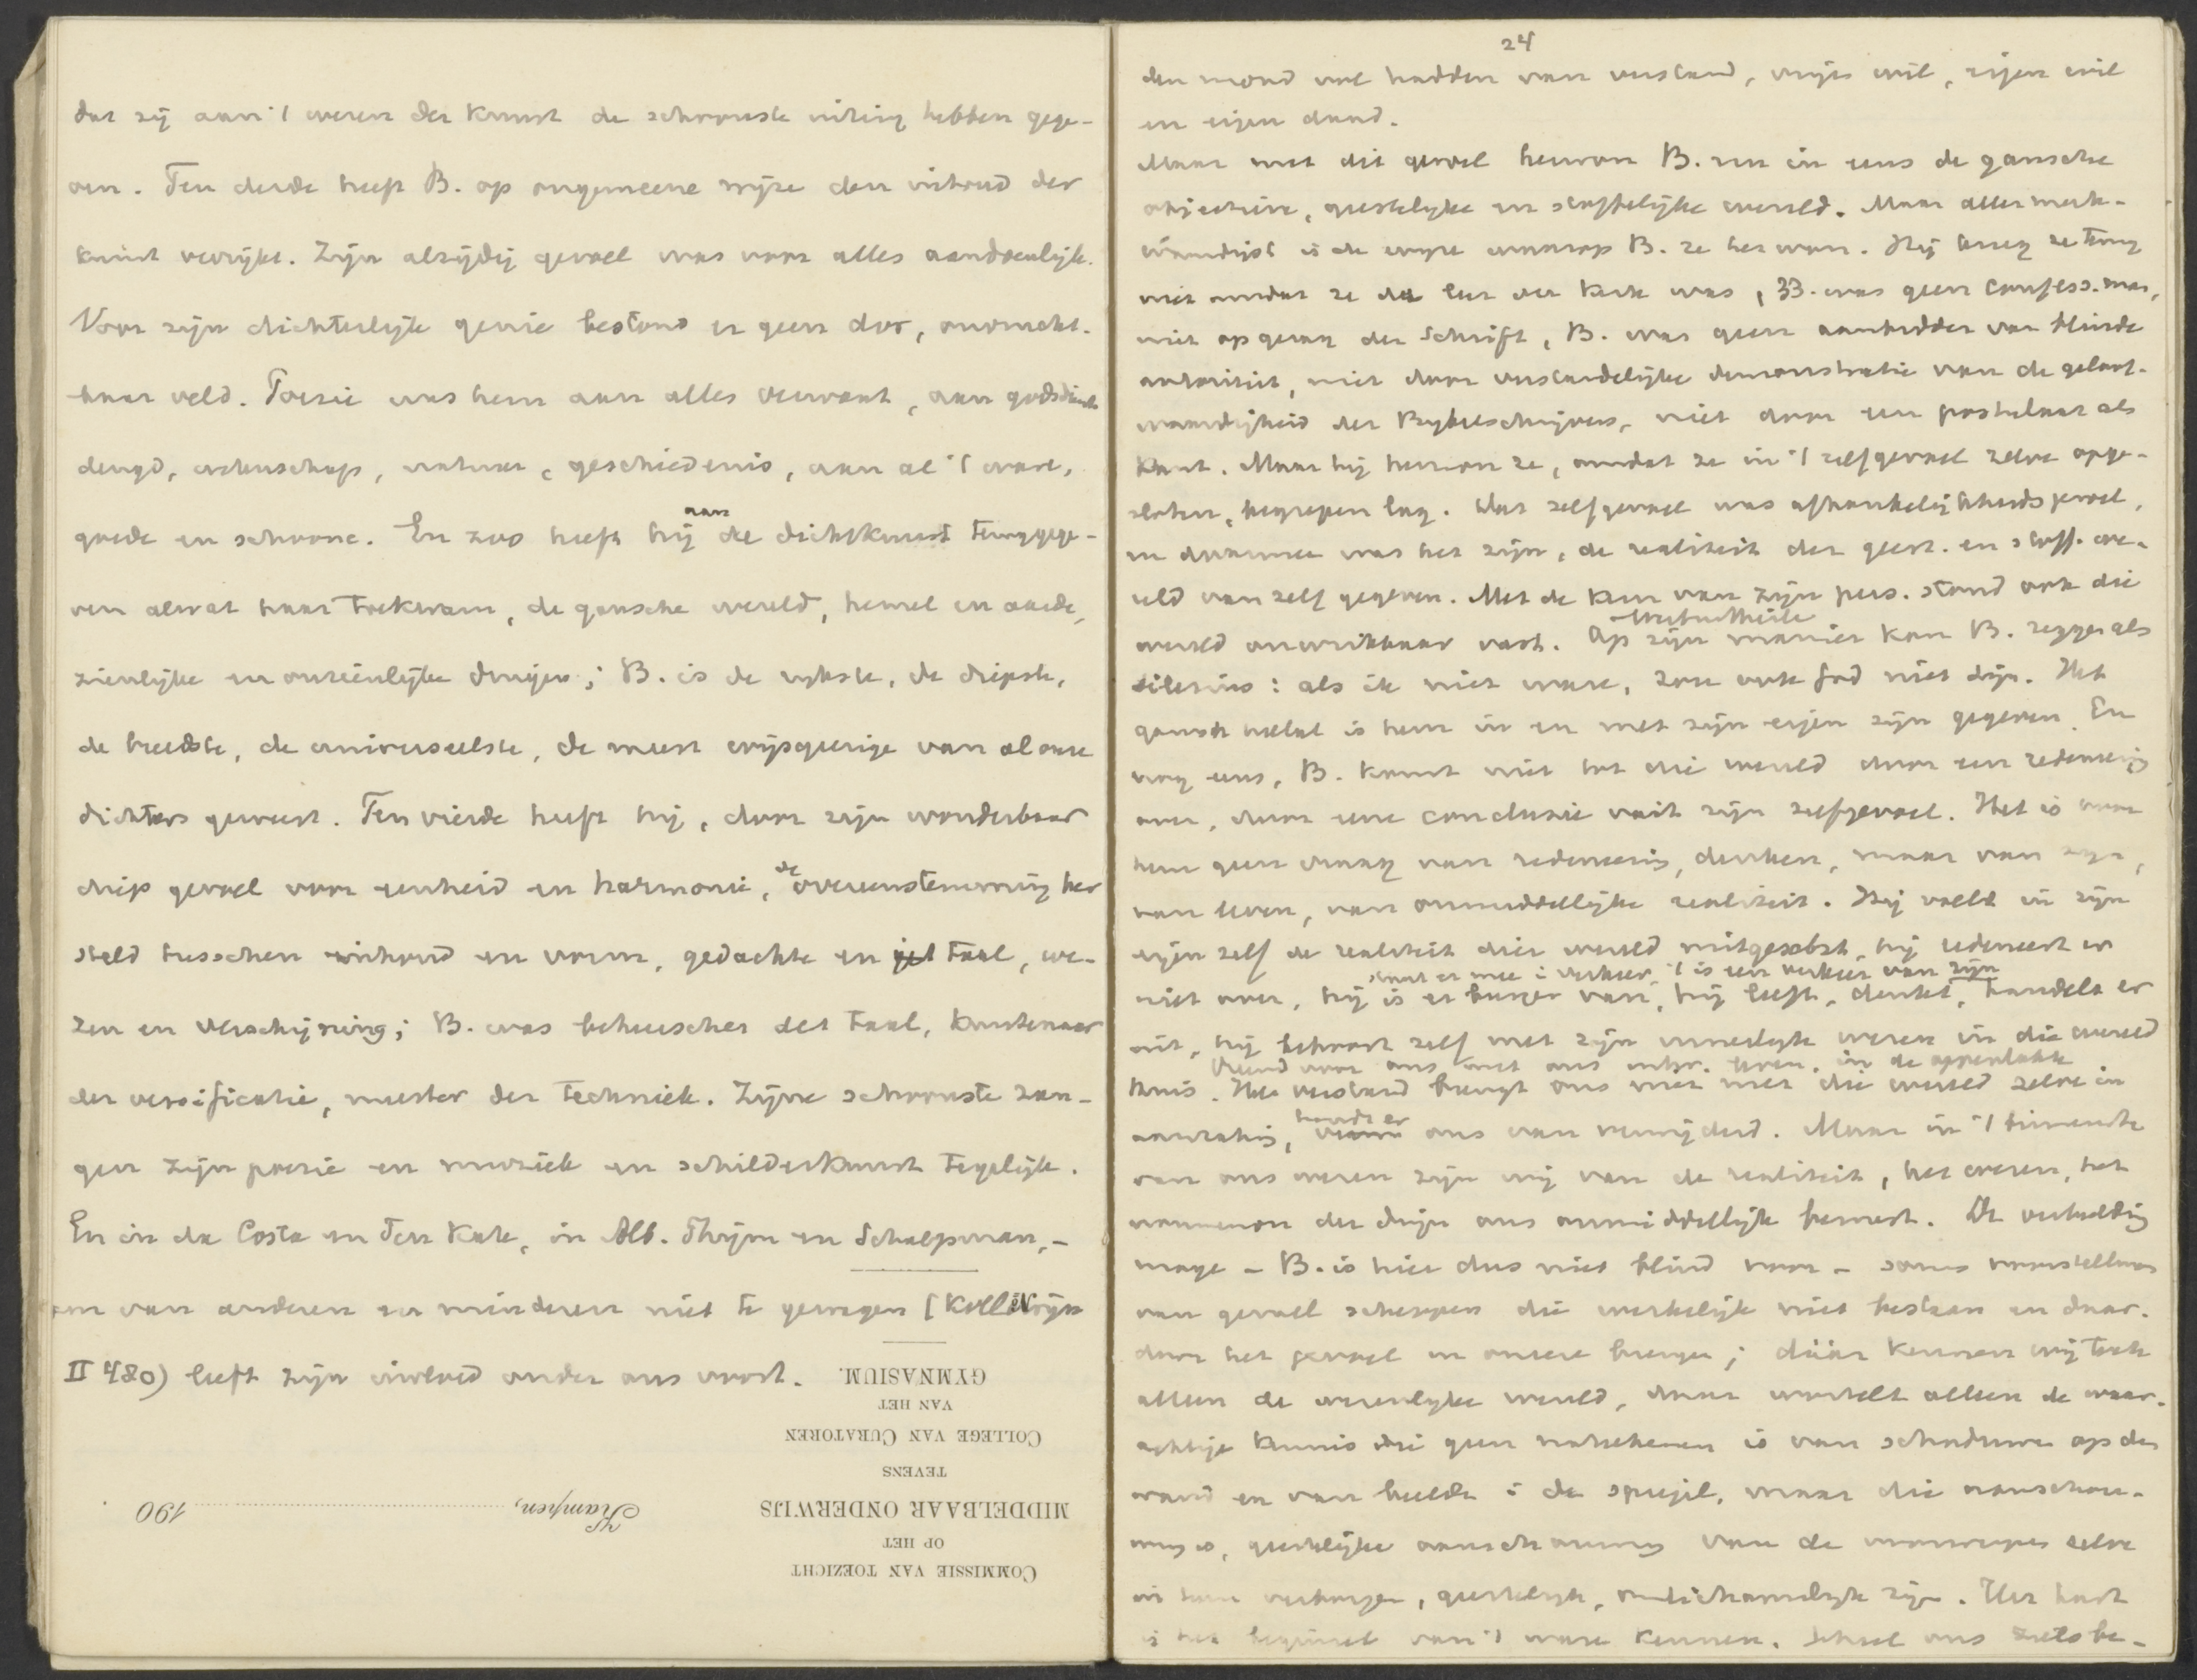 dat zij aan 't wezen der kunst de schoonste uiting hebben gege-
ven. Ten derde heeft B. op ongemeene wijze den inhoud der
kunst verrijkt. Zijn alzijdig gevoel was voor alles aandoenlijk.
Voor zijn dichterlijk genie bestond er geen dor, onvrucht-
baar veld. Poezie was hem aan alles verwant, aan godsdienst
deugd, wetenschap, natuur, geschiedenis, aan al 't ware,
goede en schoone. En zoo heeft hij aan de dichtkunst teruggege-
ven alwat haar toekwam, de gansche wereld, hemel en aarde,
zienlijke en onzienlijke dingen; B. is de rijkste, de diepste,
de breedste, de universeelste, de meest wijsgeerige van al onze
dichters geweest. Ten vierde heeft hij, door zijn wonderbaar
diep gevoel voor eenheid en harmonie, de overeenstemming her
steld tusschen inhoud en vorm, gedachte en taal, we-
zen en verschijning; B. was beheerscher der taal, kunstenaar
der versificatie, meester der techniek. Zijne schoonste zan-
gen zijn poezie en muziek en schilderkunst tegelijk.
En in da Costa en Ten Kate, in Alb. Thijm en Schaepman, -
om van anderen en minderen niet te gewagen (Koll
II 480) leeft zijn invloed onder ons voort.
GYMNASIUM.
VAN HET
COLLEGE VAN CURATOREN
TEVENS
MIDDELBAAR ONDERWIJS
OP HET
COMMISSIE VAN TOEZICHT
Kampen, 190 .
24
den mond vol hadden van verstand, vrije wil, eigen wil
en eigen daad.
Maar met dit gevoel herwon B. nu in eens de gansche
objectieve, geestelijke en stoffelijke wereld. Maar allermerk-
waardigst is de wijze waarop B. ze herwon. Hij kreeg ze terug
niet omdat ze de leer der kerk was, B. was geen confess. man,
niet op gezag der Schrift, B. was geen aanbidder van blinde
autoriteit, niet door verstandelijke demonstratie van de geloof-
waardigheid der Bijbelschrijvers, niet door een postulaat als
Kant. Maar hij herwon ze, omdat ze in 't zelfgevoel zelve opge-
sloten, begrepen lag. Dat zelfgevoel was afhankelijkheidsgevoel,
en daarmee was het zijn, de realiteit der geest. en stoff. we-
reld van zelf gegeven. Met de kern van zijn pers. stond ook die
wereld onwrikbaar vast. Op zijn manier kan B. zeggen als
Silesius: als ik niet ware, zou ook God niet zijn. Het
gansch heelal is hem in en met zijn eigen zijn gegeven. En
nog eens, B. komt niet tot die wereld door een redeneering
over, door eene conclusie uit zijn zelfgevoel. Het is voor
hem geen vraag van redeneering, denken, maar van zijn,
van leven, van onmiddellijke realiteit. Hij voelt in zijn
eigen zelf de realiteit dier wereld, hij redeneert er
staat er mee i verkeer, 't is een verkeer van zijn
niet over, hij is er burger van, hij leeft, denkt, handelt er
uit, hij behoort zelf met zijn innerlijk wezen in die wereld
thuis. Het verstand brengt ons niet met die wereld zelve in
aanraking, houdt er ons van verwijderd. Maar in 't binnenste
van ons wezen zijn wij van de realiteit, het wezen, het
noumenon der dingen ons onmiddellijk bewust. De verbeelding
moge - B. is hier dus niet blind voor - soms voorstellingen
van gevoel scheppen die werkelijk niet bestaan en daar-
door het gevoel in onzere brengen; dáár kennen wij toch
alleen de wezenlijke wereld, daar wortelt alleen de waar-
achtige kennis die geen is van schaduwen op den
wand en van beelden i de spiegel, maar die aanschou-
wing is, geestelijke aanschouwing van de voorwerpen zelve
in hun verborgen, geestelijk, onlichamelijk zijn. Het hart
is het beginsel van 't ware kennen. Schoel ons zielsbe-